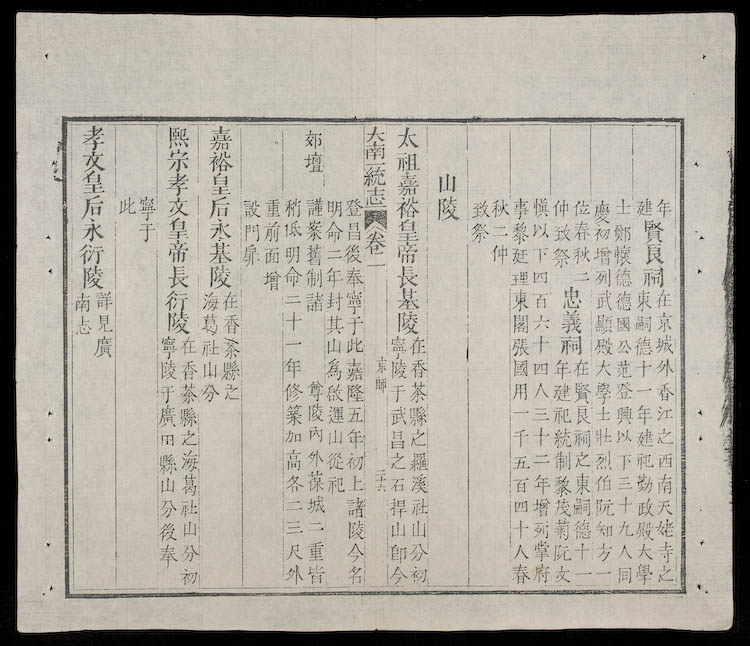 年建賢良祠在京城外香江之西南天姥寺之
東嗣德十一年建祀勤政殿大學
士鄭懷德德國公范登興以下三十九人同
慶初增列武顯殿大學士壯烈伯阮知方一
位春秋二
仲致祭
忠義祠在賢良祠之東嗣德十一
年建祀統制黎茂菊阮文
慎以下四百六十四人三十二年增列掌府
事黎廷理東閣張國用一千五百四十人春
秋二仲
致祭
山陵
太祖嘉裕皇帝長基陵在香茶縣之羅溪社山分初
寧陵于武昌之石捍山卽今
大南一統志 卷一 京師 三十六
登昌後奉寧于此嘉隆五年初上諸陵今名
明命二年封其山為啟運山從祀
郊壇
謹案舊制諸 尊陵內外葆城二重皆
稍低明命二十一年修築加高各二三尺外
重前面增
設門扉
嘉裕皇后永基陵在香茶縣之
海葛社山分
熙宗孝文皇帝長衍陵在香茶縣之海葛社山分初
寧陵于廣田縣山分後奉
寧于
此
孝文皇后永衍陵詳見廣
南志